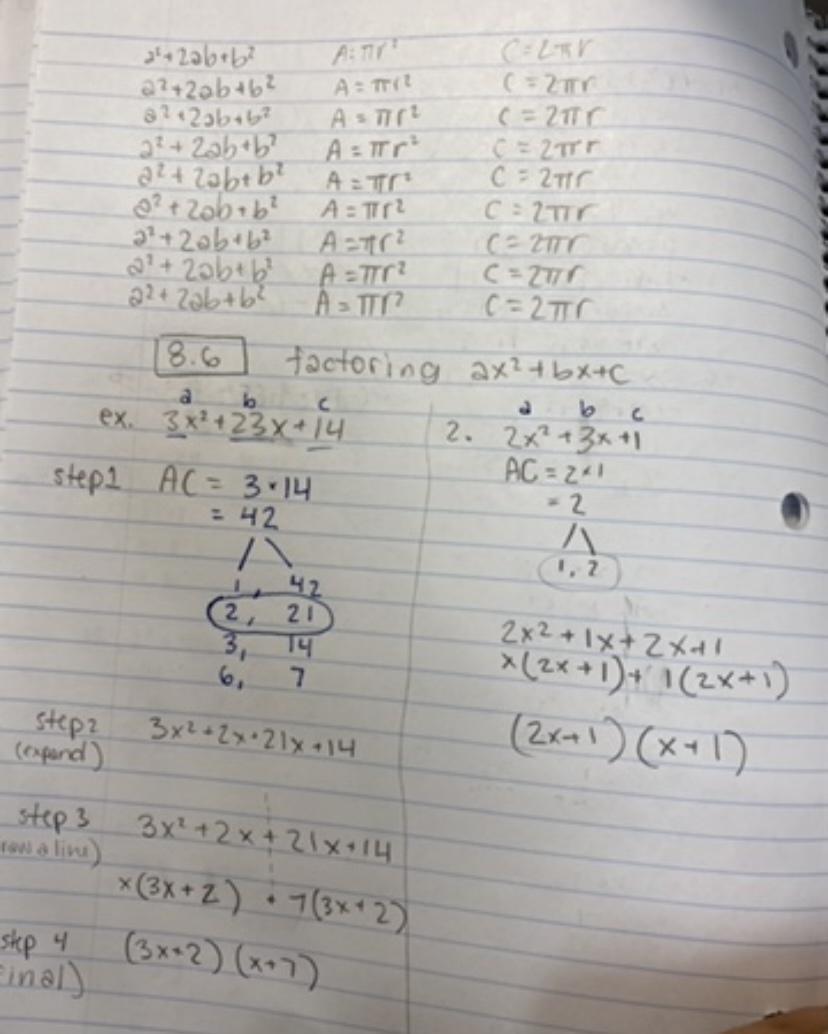 a²+2ab+b² A=πr² C=2πr
a²+2ab+b² A=πr² C=2πr
a²+2ab+b² A=πr² C=2πr
a²+2ab+b² A=πr² C=2πr
a²+2ab+b² A=πr² C=2πr
a²+2ab+b² A=πr² C=2πr
a²+2ab+b² A=πr² C=2πr
a²+2ab+b² A=πr² C=2πr
a²+2ab+b² A=πr² C=2πr
8.6 factoring ax²+bx+c
a b c
ex. 3x²+23x+14
step1 AC = 3•14
= 42
1, 42
2, 21
3, 14
6, 7
step2 3x²+2x+21x+14
(expand)
step 3 3x²+2x+21x+14
a line)
x(3x+2) + 7(3x+2)
step 4 (3x+2)(x+7)
final)
a b c
2. 2x²+3x+1
AC = 2•1
= 2
1, 2
2x²+1x+2x+1
x(2x+1)+1(2x+1)
(2x+1)(x+1)